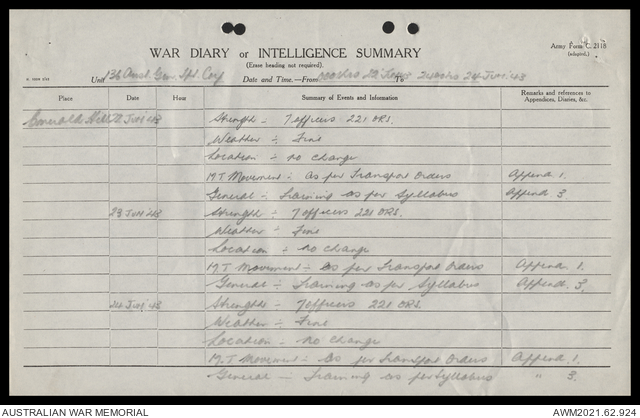 Army Form C. 2118
(adapted.)
WAR DIARY or INTELLIGENCE SUMMARY
(Erase heading not required).
Unit 136 Aust. Gen. Tpt. Coy Date and Time.—From 0001hrs 22 June 43 To 24 00hrs 24 Jun '43
Place Date Hour Summary of Events and Information Remarks and references to Appendices, Diaries, &c.
Emerald Hill 22 Jun '43 Strength - 7 officers 221 ORS.
Weather ÷ Fine
Location ÷ no change
M.T. Movement ÷ as per Transport Orders Append 1.
General ÷ Training as per Syllabus Append 3
23 Jun '43 Strength ÷ 7 officers 221 ORS.
Weather ÷ Fine
Location ÷ no change
M.T. Movement ÷ as per Transport Orders Append. 1.
General ÷ Training as per Syllabus Append. 3.
24 Jun '43 Strength ÷ 7 officers 221 ORS.
Weather ÷ Fine
Location - no change
M.T. Movement ÷ as per Transport Orders Append 1.
General ÷ Training as per Syllabus " 3.
AUSTRALIAN WAR MEMORIAL AWM2021.62.924